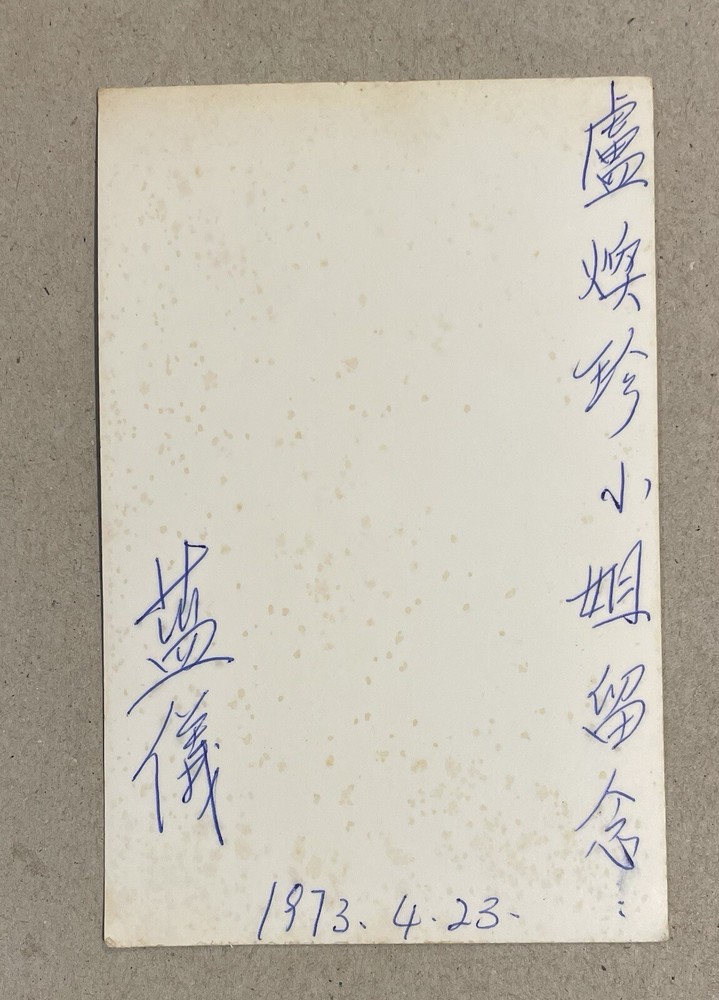 盧煥珍小姐留念:
藍儀
1973.4.23.